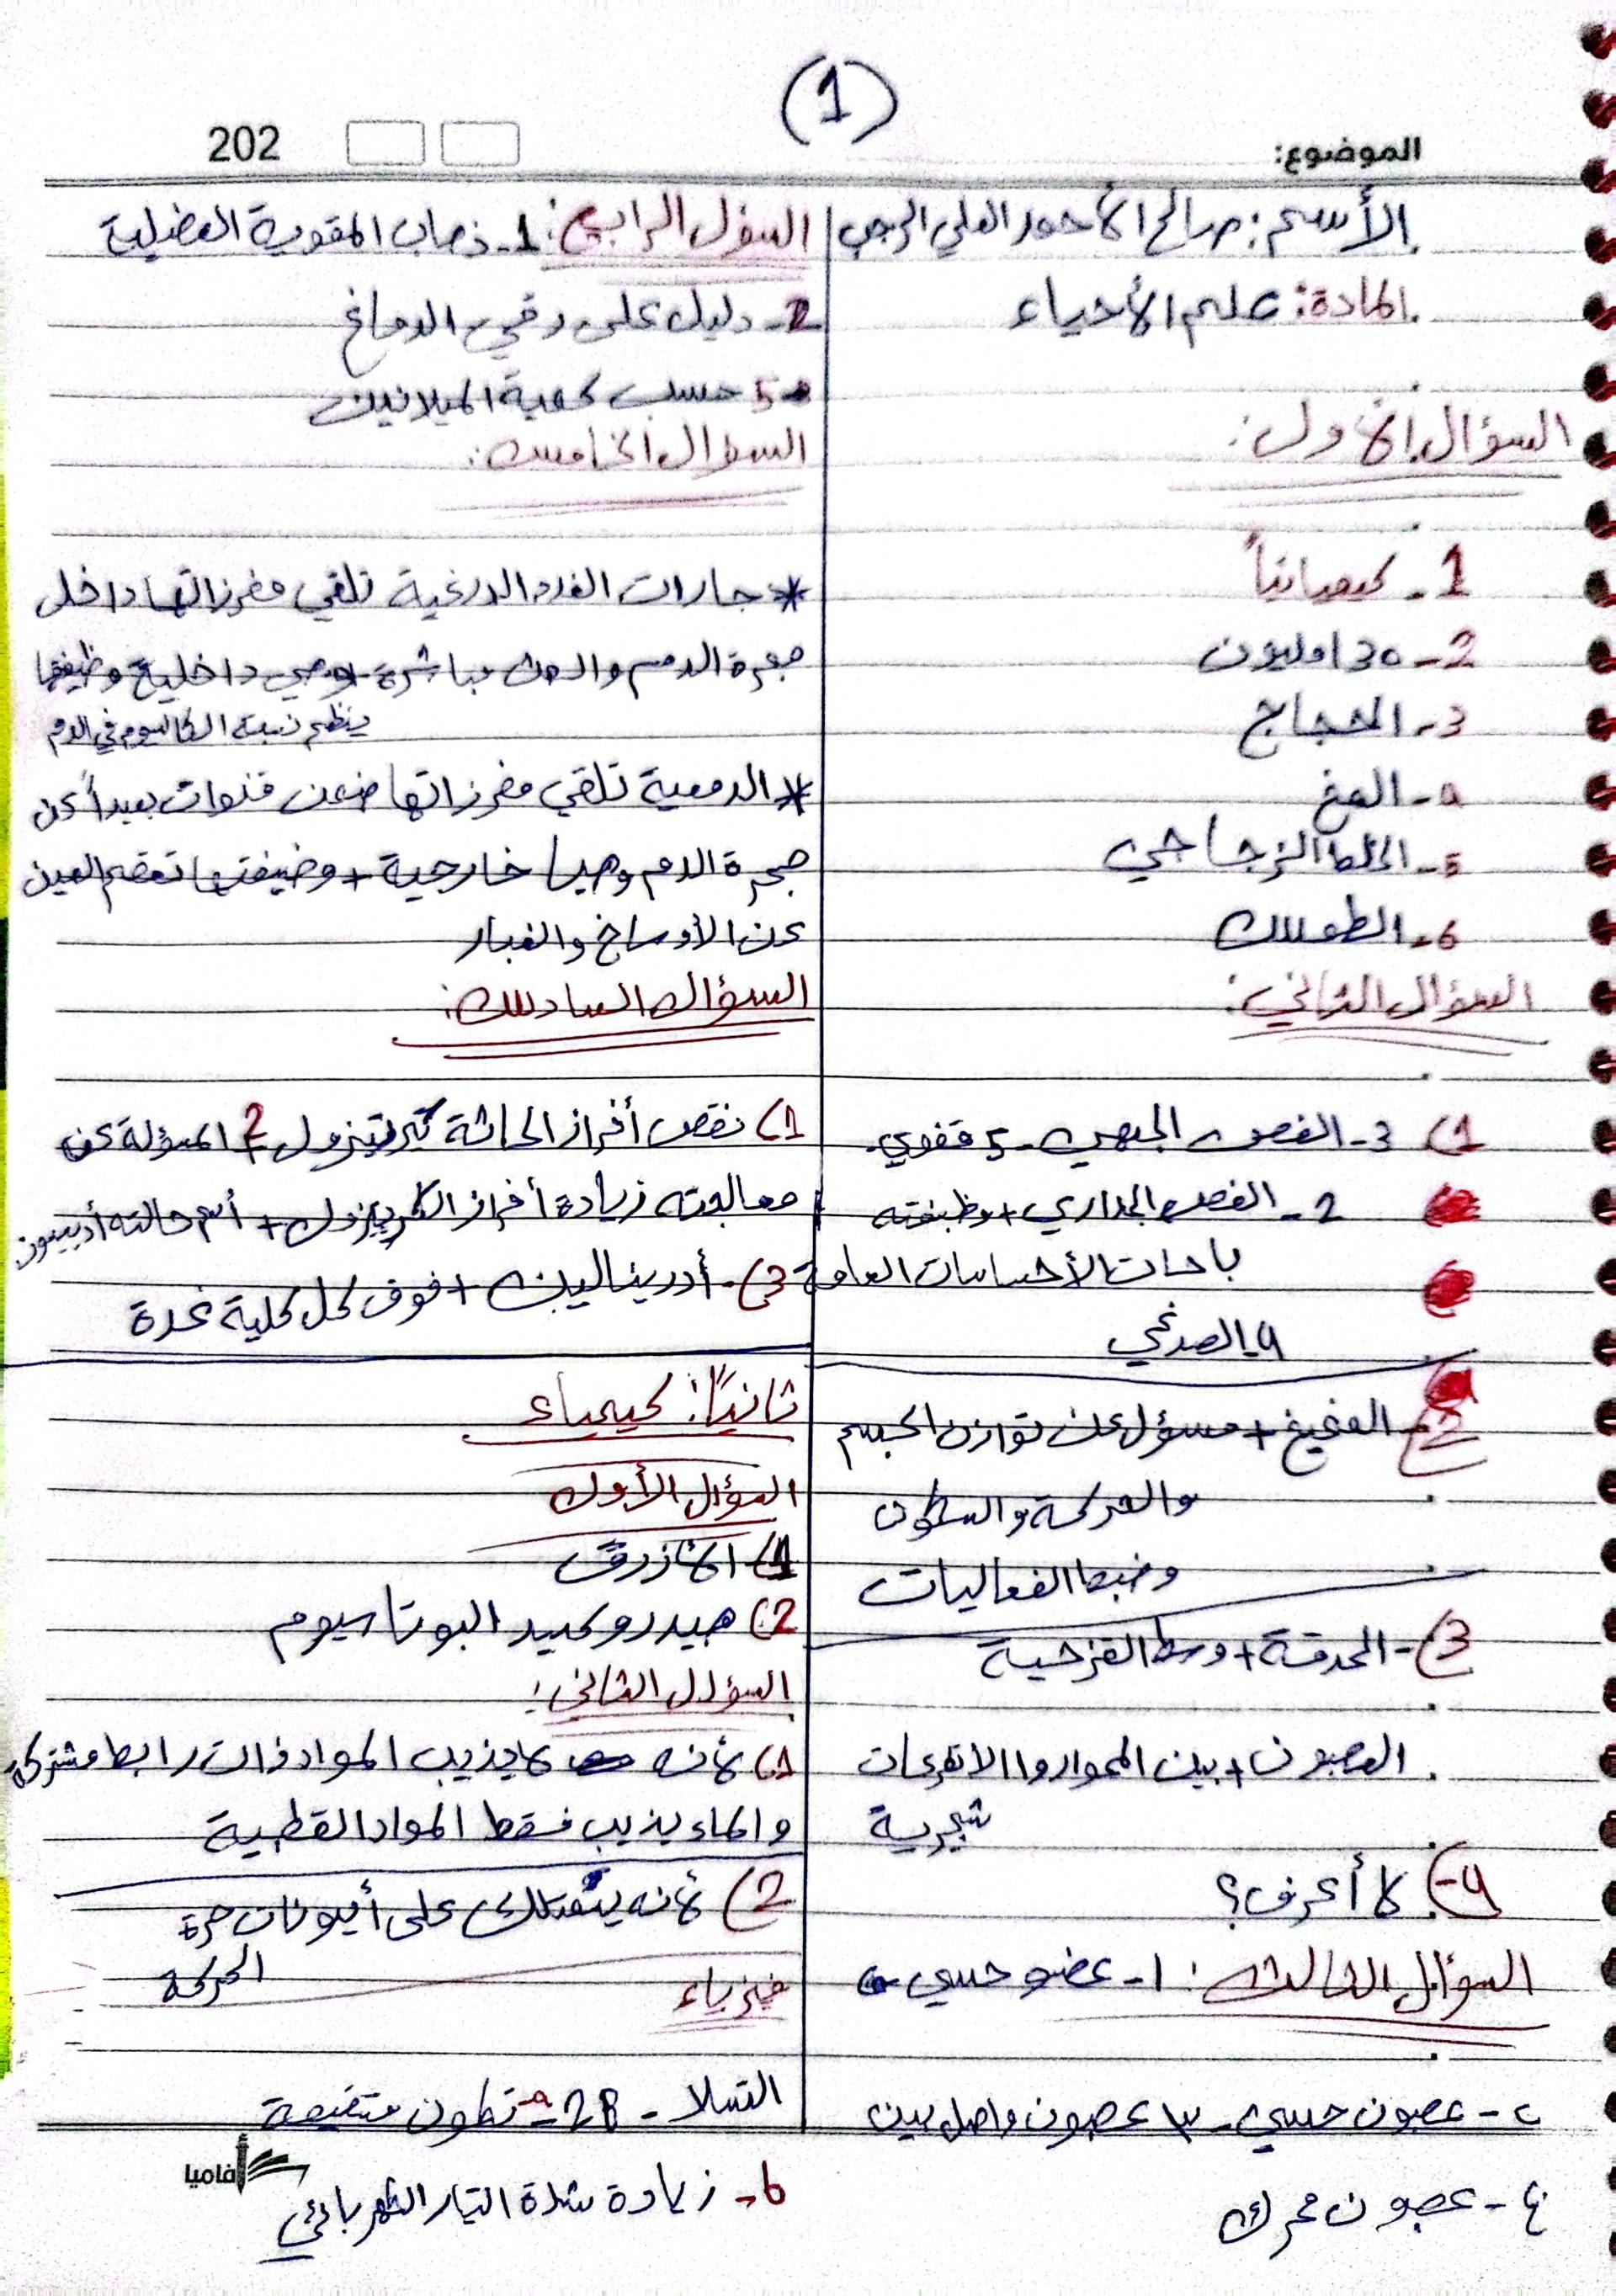 (1)
الموضوع:
202
الأسم: صالح الأحمد العلي الرجب
المادة: علم الأحياء
السؤال الأول:
1 - كيميائياً
2 - 130 مليون
3 - الحجاج
4 - المخ
5 - الخلط الزجاجي
6 - الطعلاك
السؤال الثاني:
1) 3 - الفص الجبهي - 5 قفوي
2 - الفص الجداري + وظيفته
باحات الأحساسات العامة
4 - الصدغي
2) المخيخ + مسؤل عن توازن الجسم
والحركة والسكون
وضبط الفعاليات
3) - الحدقة + وسط القزحية
العصبون + بين المحوار والاتفرعات
شجرية
4) - لا أعرف؟
السؤال الثالث: 1 - عضو حسي
2 - عصبون حسي - 3 عصبون واصل بين
4 - عصبون محرك
السؤل الرابع: 1 - ذهاب المقوية العضلية
2 - دليل على رقي الدماغ
5 حسب كمية الميلانين
السؤال الخامس:
* جارات الغدد الدرغية تلقي مفرزاتها داخل
مجرة الدم والدوث مباشرة وهي داخلية وظيفتها
ينظم نسبة الكالسيوم في الدم
* الدمعية تلقي مفرزاتها ضمن قنوات بعيداً عن
مجرة الدم وهيا خارجية + وضيفتها تعقم العين
عن الأوساخ والغبار
السؤال السادس:
1) نقص أفراز الحاثة 2 المسؤلة عن
معالجته زيادة أفراز الكورتيزول + أسم حالته أديسون
3) - أدرينالين + فوق كل كلية غدة
ثانياً: كيمياء
السؤال الأول
1) الأزرق
2) هيدروكسيد البوتاسيوم
السؤال الثاني:
1) لأنه لا يذيب المواد ذات رابط مشتركة
والماء يذيب فقط المواد القطبية
2) لأنه يتفكك على أيونات حرة
الحركة
فيزياء
التسلا - 2B - 4 تكون متقيمة
6 - زيادة شدة التيار الكهربائي
فاميا